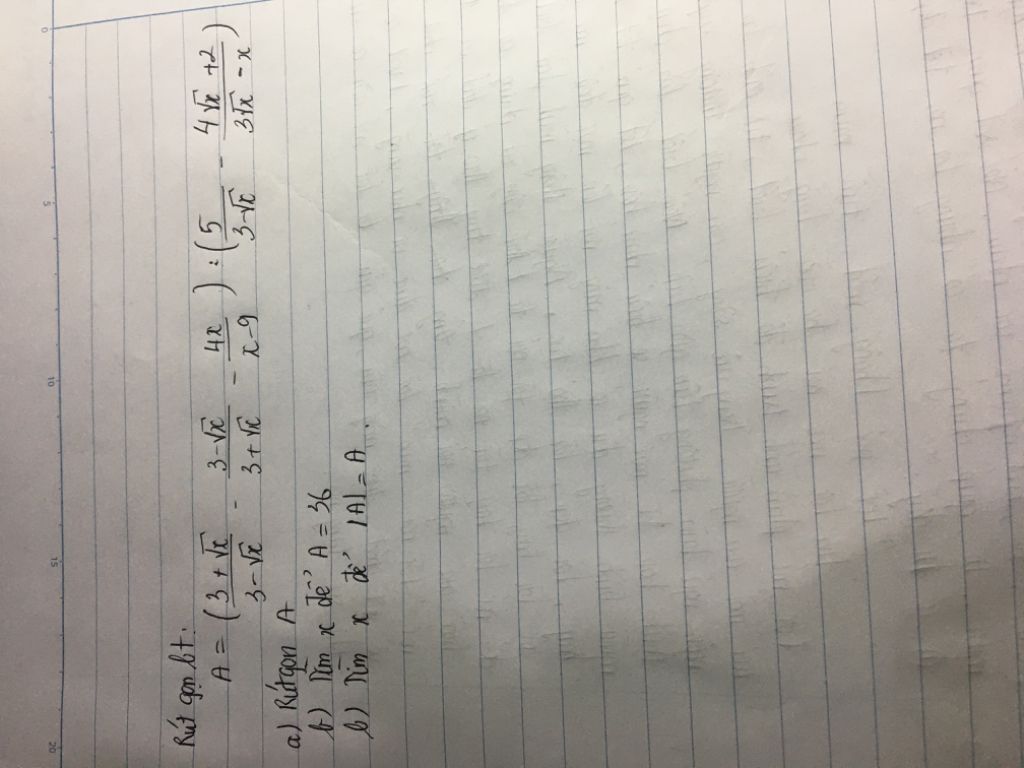 Rút gọn bt:
A = (3+√x / 3-√x - 3-√x / 3+√x - 4x / x-9) : (5 / 3-√x - 4√x+2 / 3√x-x)
a) Rút gọn A
b) Tìm x để A = 36
b) Tìm x để |A| = A.
0 5 10 15 20